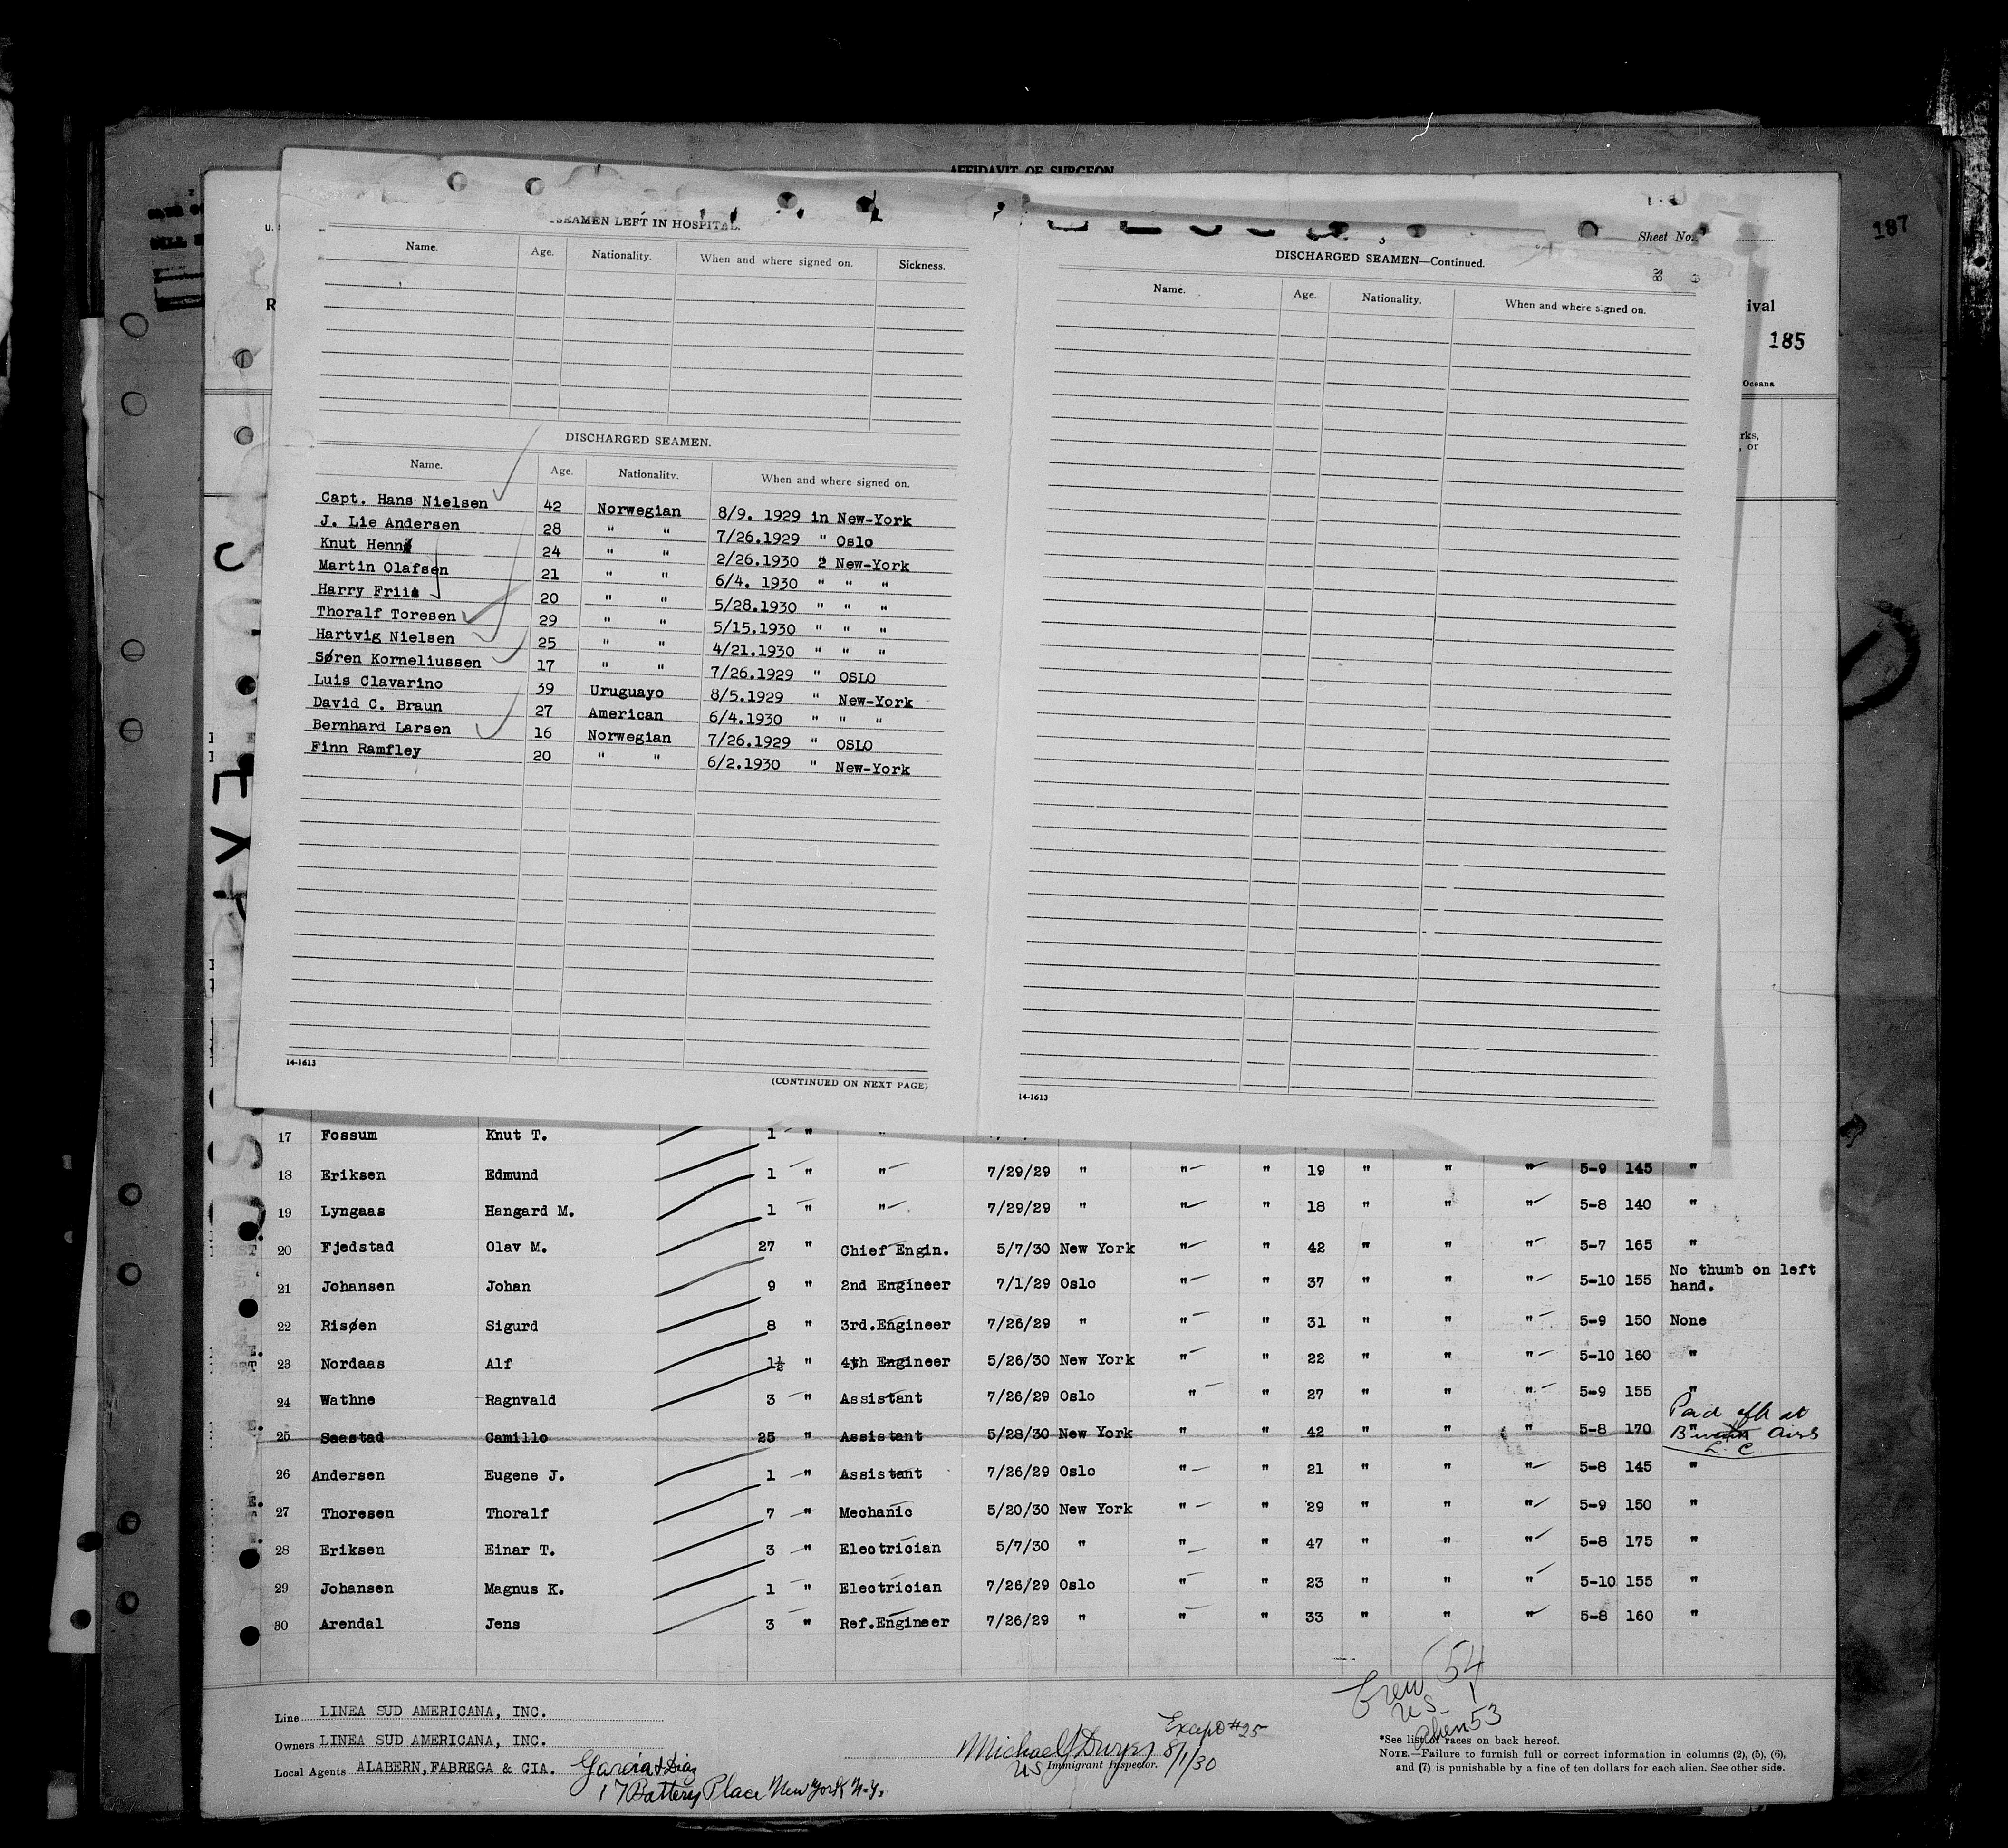 AFFIDAVIT OF SURGEON
187
SEAMEN LEFT IN HOSPITAL.
Name. Age. Nationality. When and where signed on. Sickness.
DISCHARGED SEAMEN.
Name. Age. Nationality. When and where signed on.
Capt. Hans Nielsen 42 Norwegian 8/9. 1929 in New-York
J. Lie Andersen 28 " " 7/26.1929 " Oslo
Knut Henn 24 " " 2/26.1930 2 New-York
Martin Olafsen 21 " " 6/4. 1930 " " "
Harry Friis 20 " " 5/28.1930 " " "
Thoralf Toresen 29 " " 5/15.1930 " " "
Hartvig Nielsen 25 " " 4/21.1930 " " "
Søren Korneliussen 17 " " 7/26.1929 " OSLO
Luis Clavarino 39 Uruguayo 8/5.1929 " New-York
David C. Braun 27 American 6/4.1930 " " "
Bernhard Larsen 16 Norwegian 7/26.1929 " OSLO
Finn Ramfley 20 " " 6/2.1930 " New-York
14-1613
(CONTINUED ON NEXT PAGE)
Sheet No.
DISCHARGED SEAMEN—Continued.
Name. Age. Nationality. When and where signed on.
14-1613
ival
185
Oceana
rks,
, or
17 Fossum Knut T. 1 " "
18 Eriksen Edmund 1 " " 7/29/29 " " " 19 " " " 5-9 145 "
19 Lyngaas Hangard M. 1 " " 7/29/29 " " " 18 " " " 5-8 140 "
20 Fjedstad Olav M. 27 " Chief Engin. 5/7/30 New York " " 42 " " " 5-7 165 "
21 Johansen Johan 9 " 2nd Engineer 7/1/29 Oslo " " 37 " " " 5-10 155 No thumb on left hand.
22 Risøen Sigurd 8 " 3rd.Engineer 7/26/29 " " " 31 " " " 5-9 150 None
23 Nordaas Alf 1½ " 4th Engineer 5/26/30 New York " " 22 " " " 5-10 160 "
24 Wathne Ragnvald 3 " Assistant 7/26/29 Oslo " " 27 " " " 5-9 155 "
25 Saastad Camillo 25 " Assistant 5/28/30 New York " " 42 " " " 5-8 170 " Paid off at
26 Andersen Eugene J. 1 " Assistant 7/26/29 Oslo " " 21 " " " 5-8 145 "
27 Thoresen Thoralf 7 " Mechanic 5/20/30 New York " " 29 " " " 5-9 150 "
28 Eriksen Einar T. 3 " Electrician 5/7/30 " " " 47 " " " 5-8 175 "
29 Johansen Magnus K. 1 " Electrician 7/26/29 Oslo " " 23 " " " 5-10 155 "
30 Arendal Jens 3 " Ref.Engineer 7/26/29 " " " 33 " " " 5-8 160 "
Crew 54
U.S. 1
Alien 53
Line LINEA SUD AMERICANA, INC.
Owners LINEA SUD AMERICANA, INC.
Local Agents ALABERN, FABREGA & CIA. Garcia & Diaz
17 Battery Place New York N.Y.
Except #25
Michael J Dwyer 8/1/30
US Immigrant Inspector.
*See list of races on back hereof.
NOTE.—Failure to furnish full or correct information in columns (2), (5), (6),
and (7) is punishable by a fine of ten dollars for each alien. See other side.